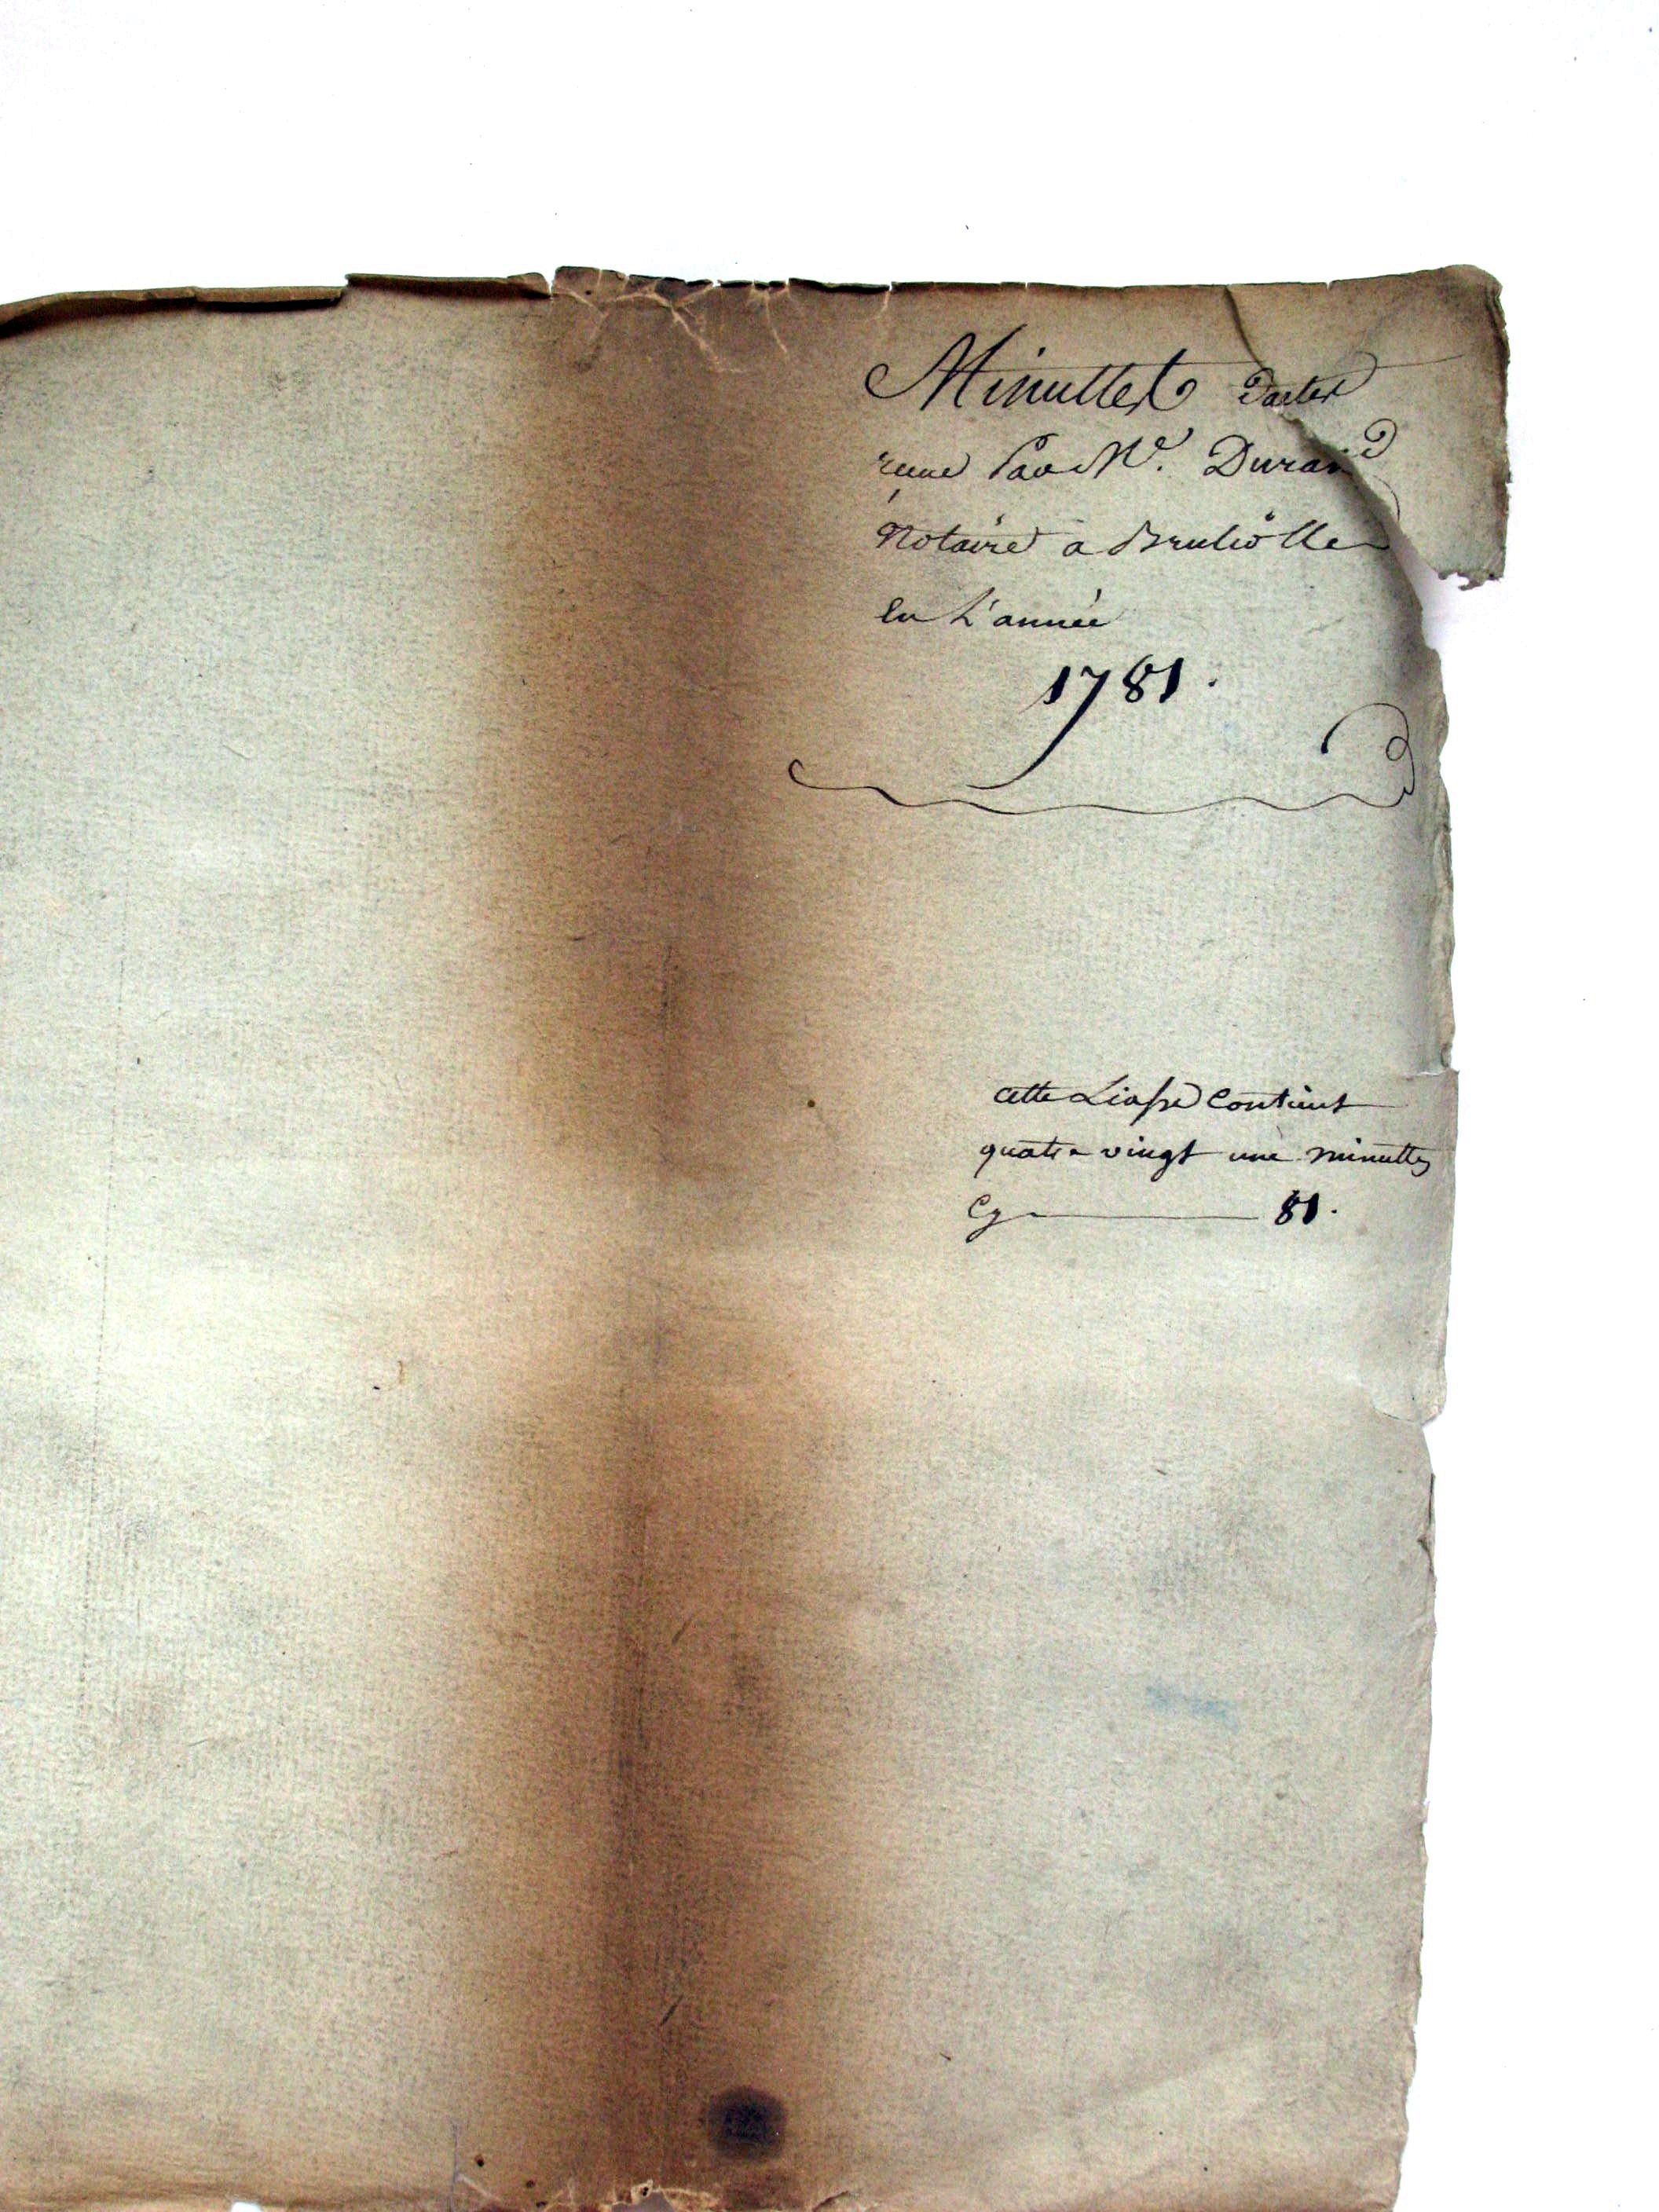 Minuttes Dactes
recue Par Me. Durand
Notaire a Brulиolles
En L'année
1781.
cette Liasse Contient
quatre vingt une minuttes
Cy 81.